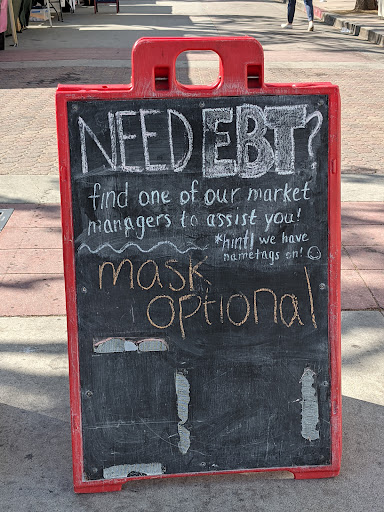 NEED EBT?
find one of our market
managers to assist you!
*hint! we have
nametags on! ☺
mask
optional